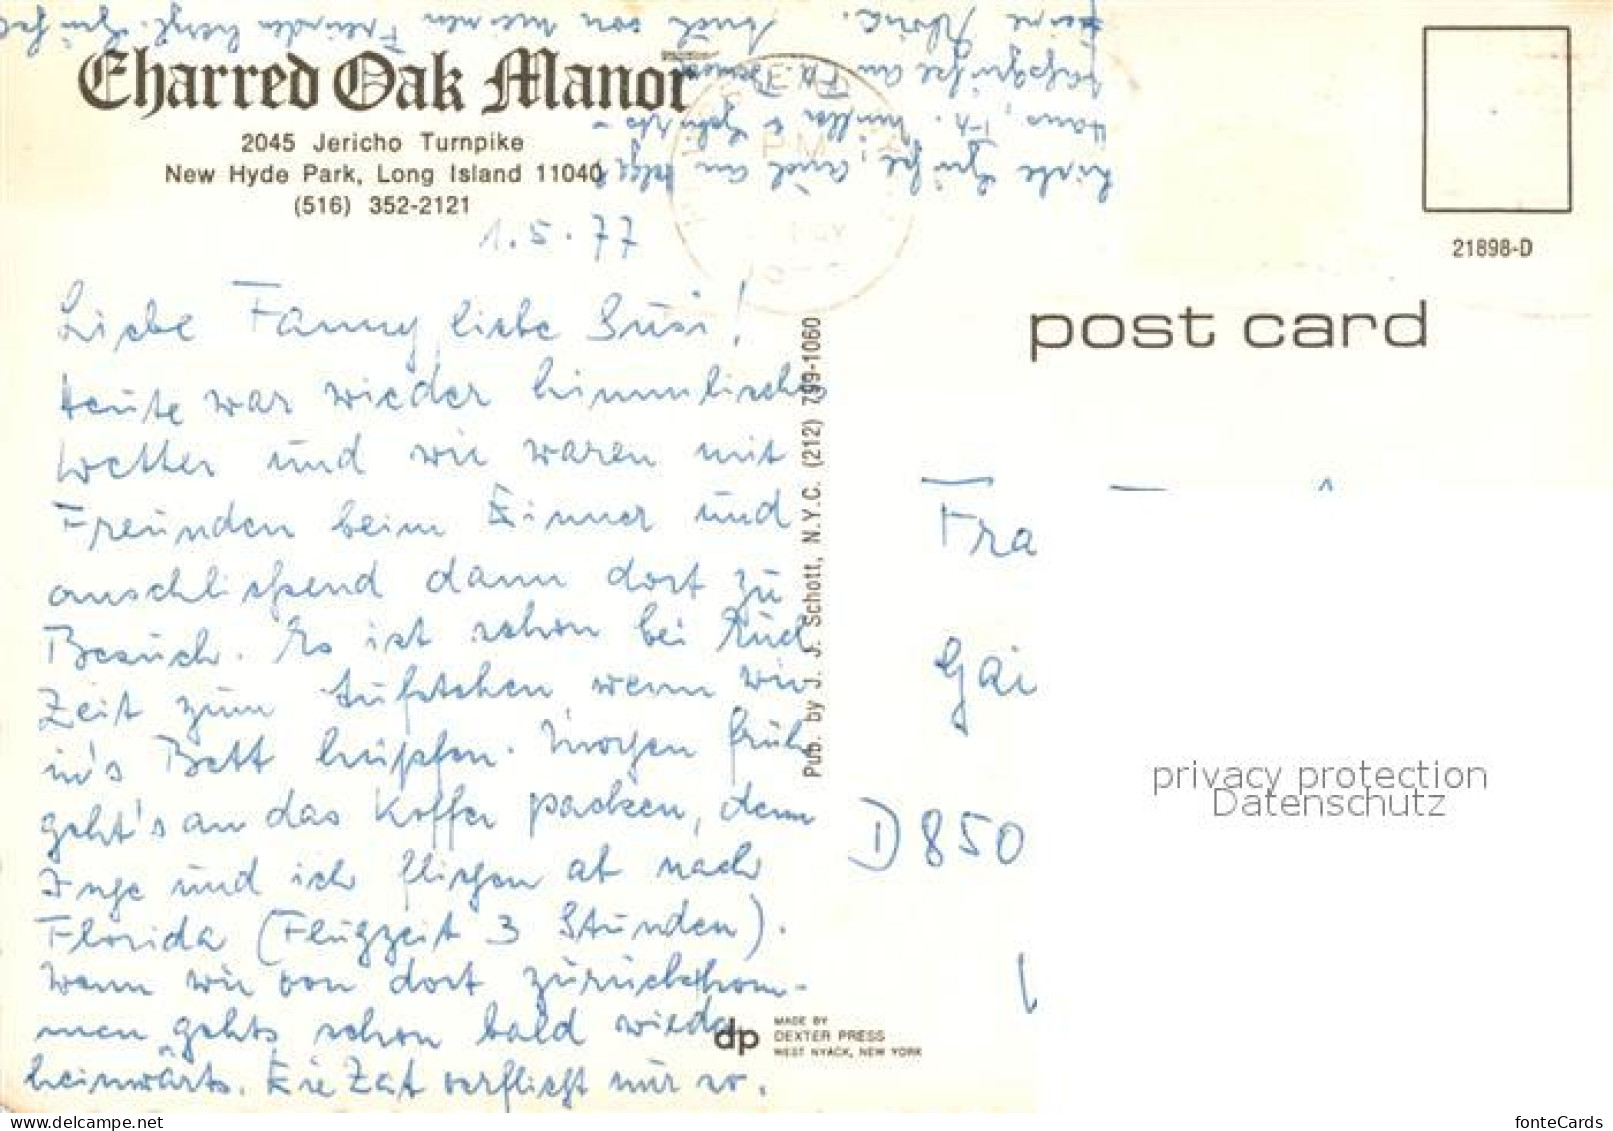 Charred Oak Manor
2045 Jericho Turnpike
New Hyde Park, Long Island 11040
(516) 352-2121
1.5.77
Liebe Fanny, liebe Susi!
Heute war wieder himmlisches
Wetter und wir waren mit
Freunden beim Dinner und
anschließend dann dort zu
Besuch. Es ist schon bei Euch
Zeit zum Aufstehen, wenn wir
in's Bett hüpfen. Morgen früh
geht's an das Koffer packen, denn
Inge und ich fliegen ab nach
Florida (Flugzeit 3 Stunden).
Wenn wir von dort zurückkom-
men gehts schon bald wieder
heimwärts. Die Zeit verfliegt nur so.
Liebe Grüße, auch an
Hans, Fr. Müller &
an Fa.
meine Auch von meinen Freunden herzl. Grüße
PM
21898-D
post card
Pub. by J. J. Schott, N.Y.C. (212) 799-1060
Fra
Gai
D 850
privacy protection
Datenschutz
dp
MADE BY
DEXTER PRESS
WEST NYACK, NEW YORK
www.delcampe.net
fonteCards